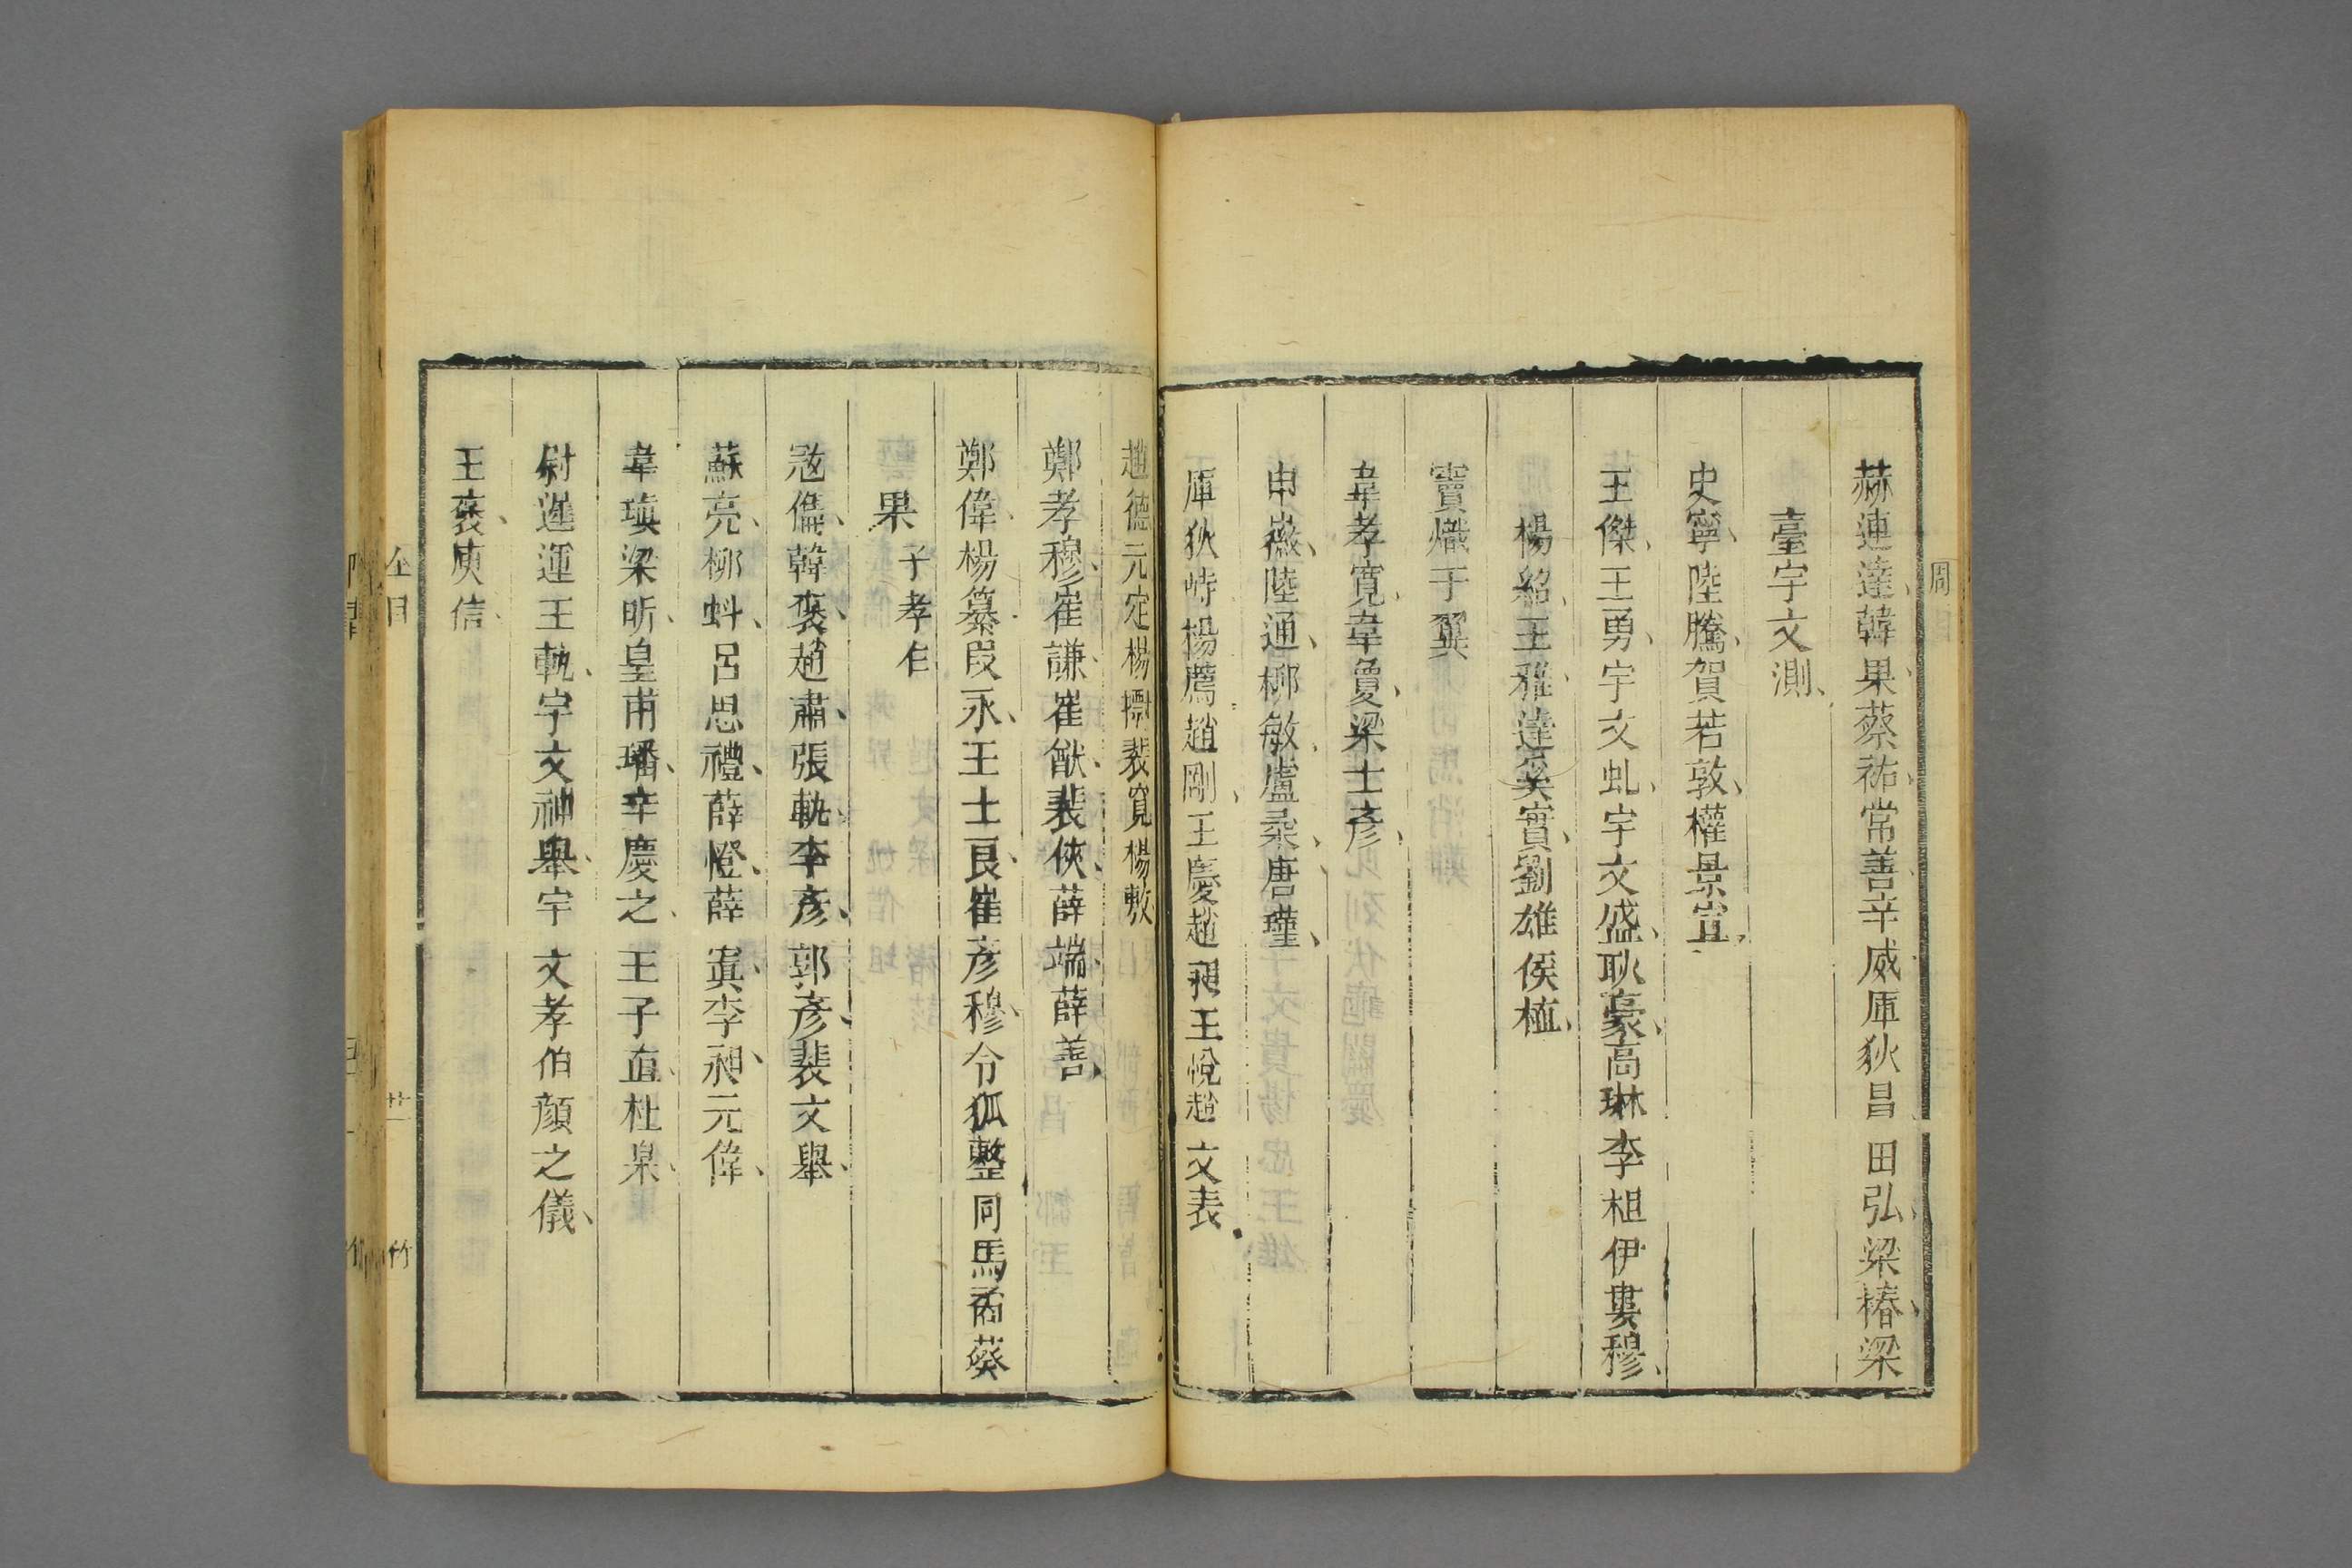 赫連達韓果蔡祐常善辛威厙狄昌田弘梁椿梁
臺宇文測
史寧陸騰賀若敦權景宣
王傑王勇宇文虬宇文盛耿豪高琳李柤伊婁穆
楊紹王雅達奚實劉雄侯植
竇熾于翼
韋孝寬韋敻梁士彥
申徽陸通柳敏盧柔唐瑾
厙狄峙楊薦趙剛王慶趙昶王悅趙文表
趙德元定楊㯹裴寬楊敷
鄭孝穆崔謙崔猷裴俠薛端薛善
鄭偉楊纂叚永王士良崔彥穆令狐整司馬裔裴
果子孝仁
寇儁韓褒趙肅張軌李彥郭彥裴文舉
蘇亮柳虯呂思禮薛憕薛寘李昶元偉
韋瑱梁昕皇甫璠辛慶之王子直杜杲
尉遲運王軌宇文神舉宇文孝伯顏之儀
王褒庾信